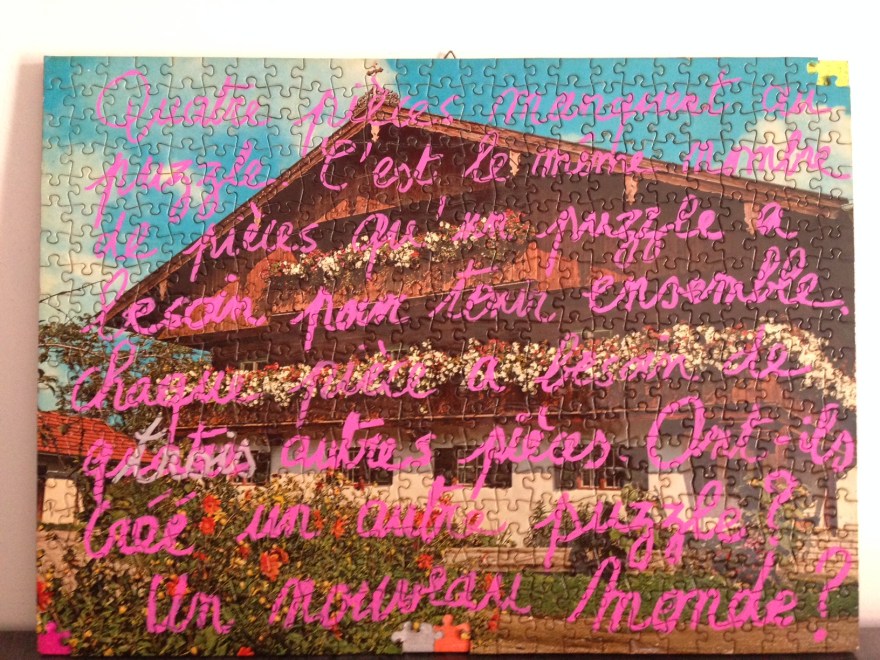 Quatre pièces manquent au
puzzle. C'est le même nombre
de pièces qu'un puzzle a
besoin pour tenir ensemble.
Chaque pièce a besoin de
trois autres pièces. Ont-ils
créé un autre puzzle?
Un nouveau Monde?